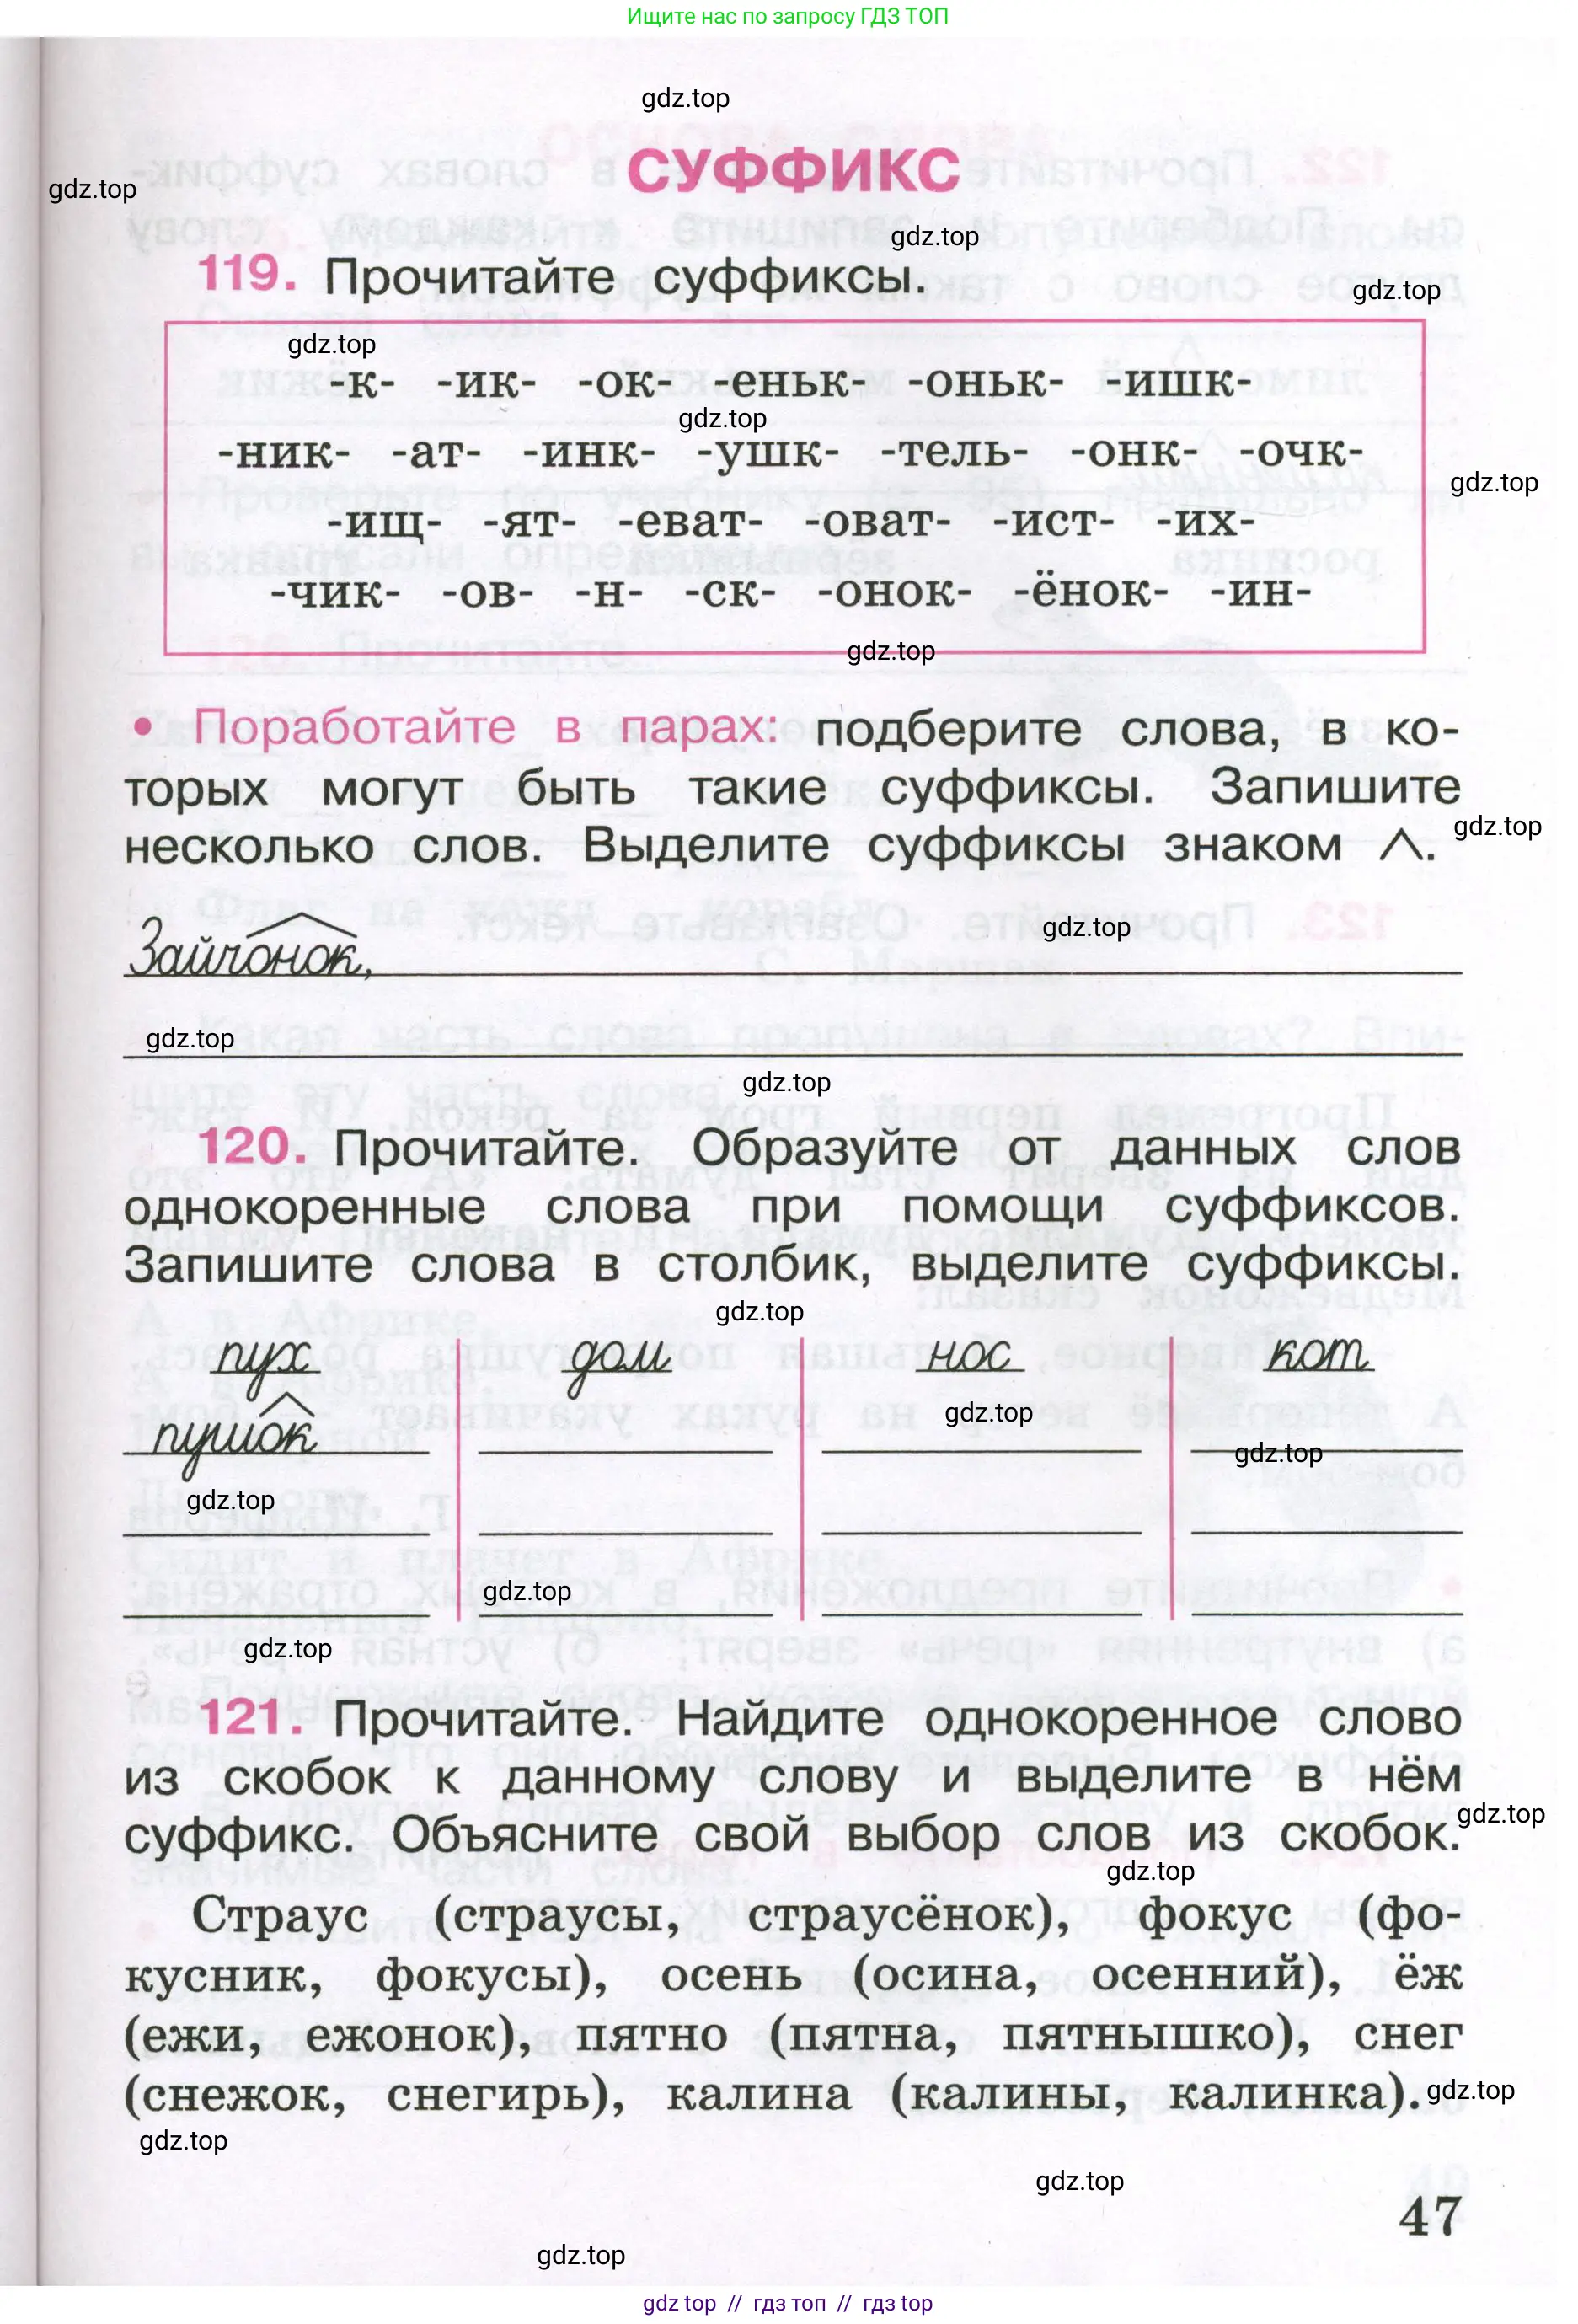 Ищите нас по запросу ГДЗ ТОП
gdz.top
СУФФИКС
gdz.top
gdz.top
119. Прочитайте суффиксы.
gdz.top
gdz.top
-к- -ик- -ок- -еньк- -оньк- -ишк-
gdz.top
-ник- -ат- -инк- -ушк- -тель- -онк- -очк-
gdz.top
-ищ- -ят- -еват- -оват- -ист- -их-
-чик- -ов- -н- -ск- -онок- -ёнок- -ин-
gdz.top
• Поработайте в парах: подберите слова, в ко-
торых могут быть такие суффиксы. Запишите
несколько слов. Выделите суффиксы знаком ^.
gdz.top
Зайчонок,
gdz.top
gdz.top
gdz.top
120. Прочитайте. Образуйте от данных слов
однокоренные слова при помощи суффиксов.
Запишите слова в столбик, выделите суффиксы.
gdz.top
пух дом нос кот
gdz.top
пушок
gdz.top
gdz.top
gdz.top
gdz.top
121. Прочитайте. Найдите однокоренное слово
из скобок к данному слову и выделите в нём
gdz.top
суффикс. Объясните свой выбор слов из скобок.
gdz.top
Страус (страусы, страусёнок), фокус (фо-
кусник, фокусы), осень (осина, осенний), ёж
(ежи, ежонок), пятно (пятна, пятнышко), снег
(снежок, снегирь), калина (калины, калинка).
gdz.top
gdz.top
gdz.top
47
gdz.top
gdz top // гдз топ // гдз top